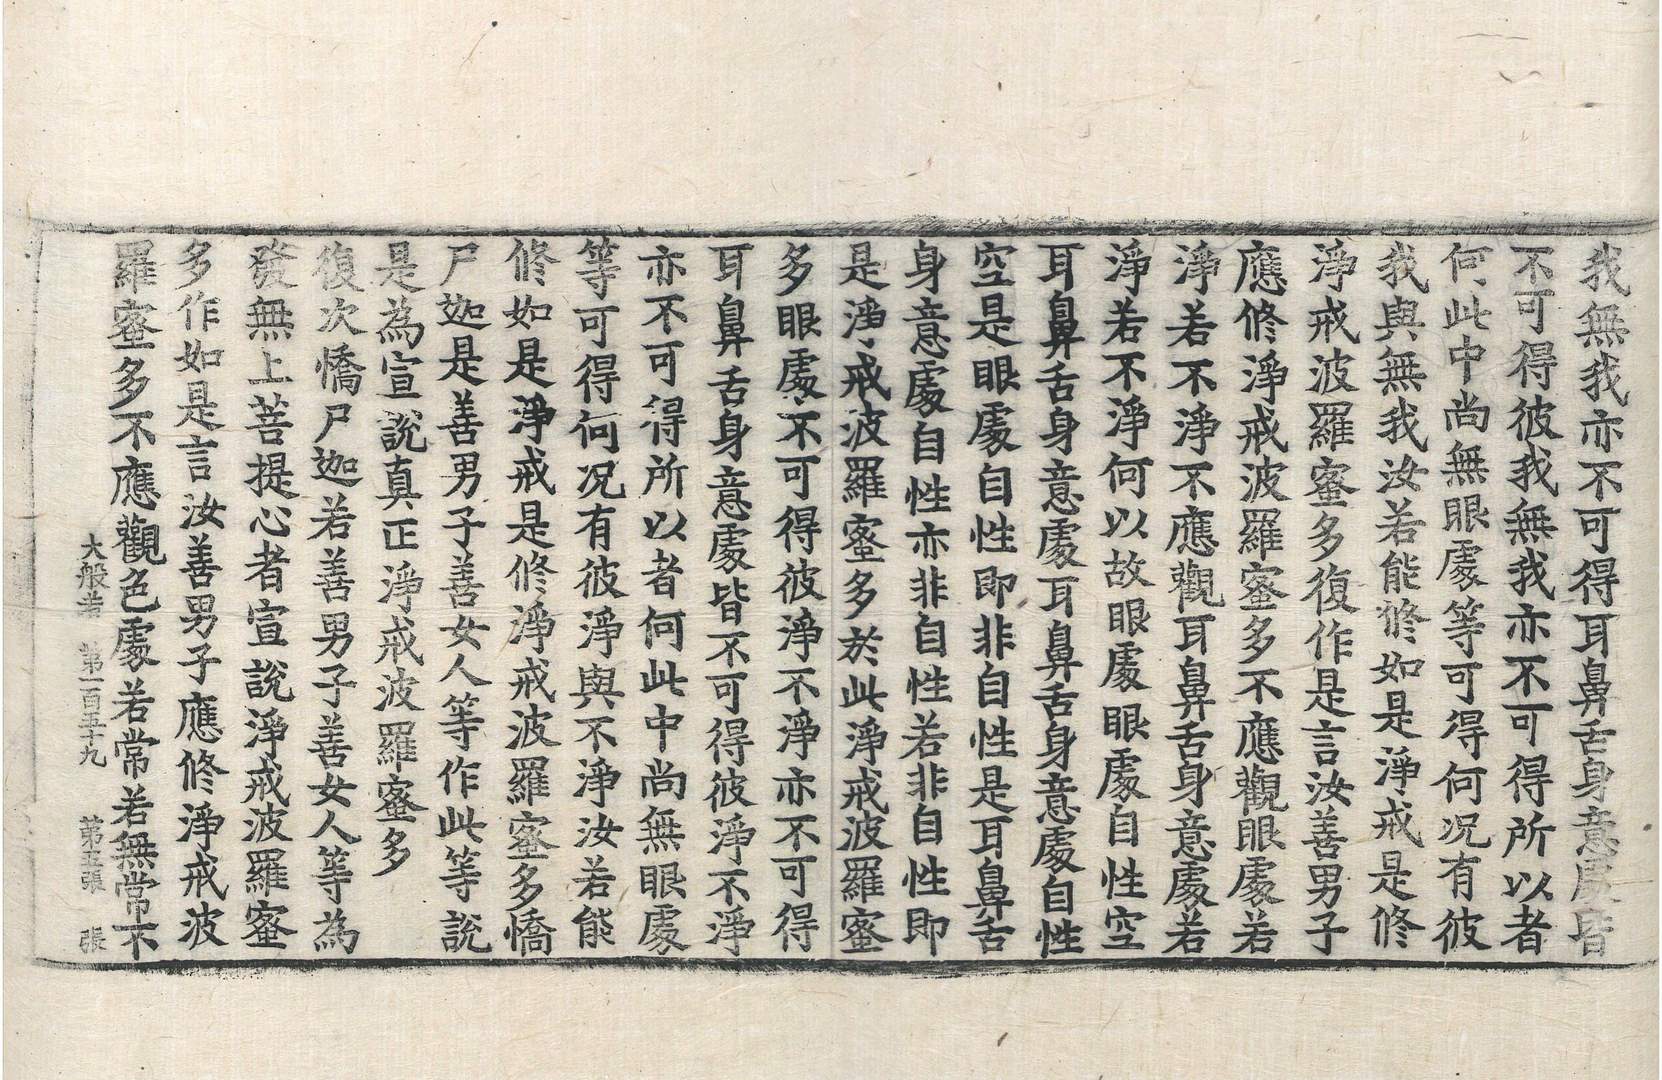 我無我亦不可得耳鼻舌身意處皆
不可得彼我無我亦不可得所以者
何此中尚無眼處等可得何况有彼
我與無我汝若能修如是淨戒是修
淨戒波羅蜜多復作是言汝善男子
應修淨戒波羅蜜多不應觀眼處若
淨若不淨不應觀耳鼻舌身意處若
淨若不淨何以故眼處眼處自性空
耳鼻舌身意處耳鼻舌身意處自性
空是眼處自性即非自性是耳鼻舌
身意處自性亦非自性若非自性即
是淨戒波羅蜜多於此淨戒波羅蜜
多眼處不可得彼淨不淨亦不可得
耳鼻舌身意處皆不可得彼淨不淨
亦不可得所以者何此中尚無眼處
等可得何况有彼淨與不淨汝若能
修如是淨戒是修淨戒波羅蜜多憍
尸迦是善男子善女人等作此等說
是為宣說真正淨戒波羅蜜多
復次憍尸迦若善男子善女人等為
發無上菩提心者宣說淨戒波羅蜜
多作如是言汝善男子應修淨戒波
羅蜜多不應觀色處若常若無常不
大般若 第一百五十九 第五張 張